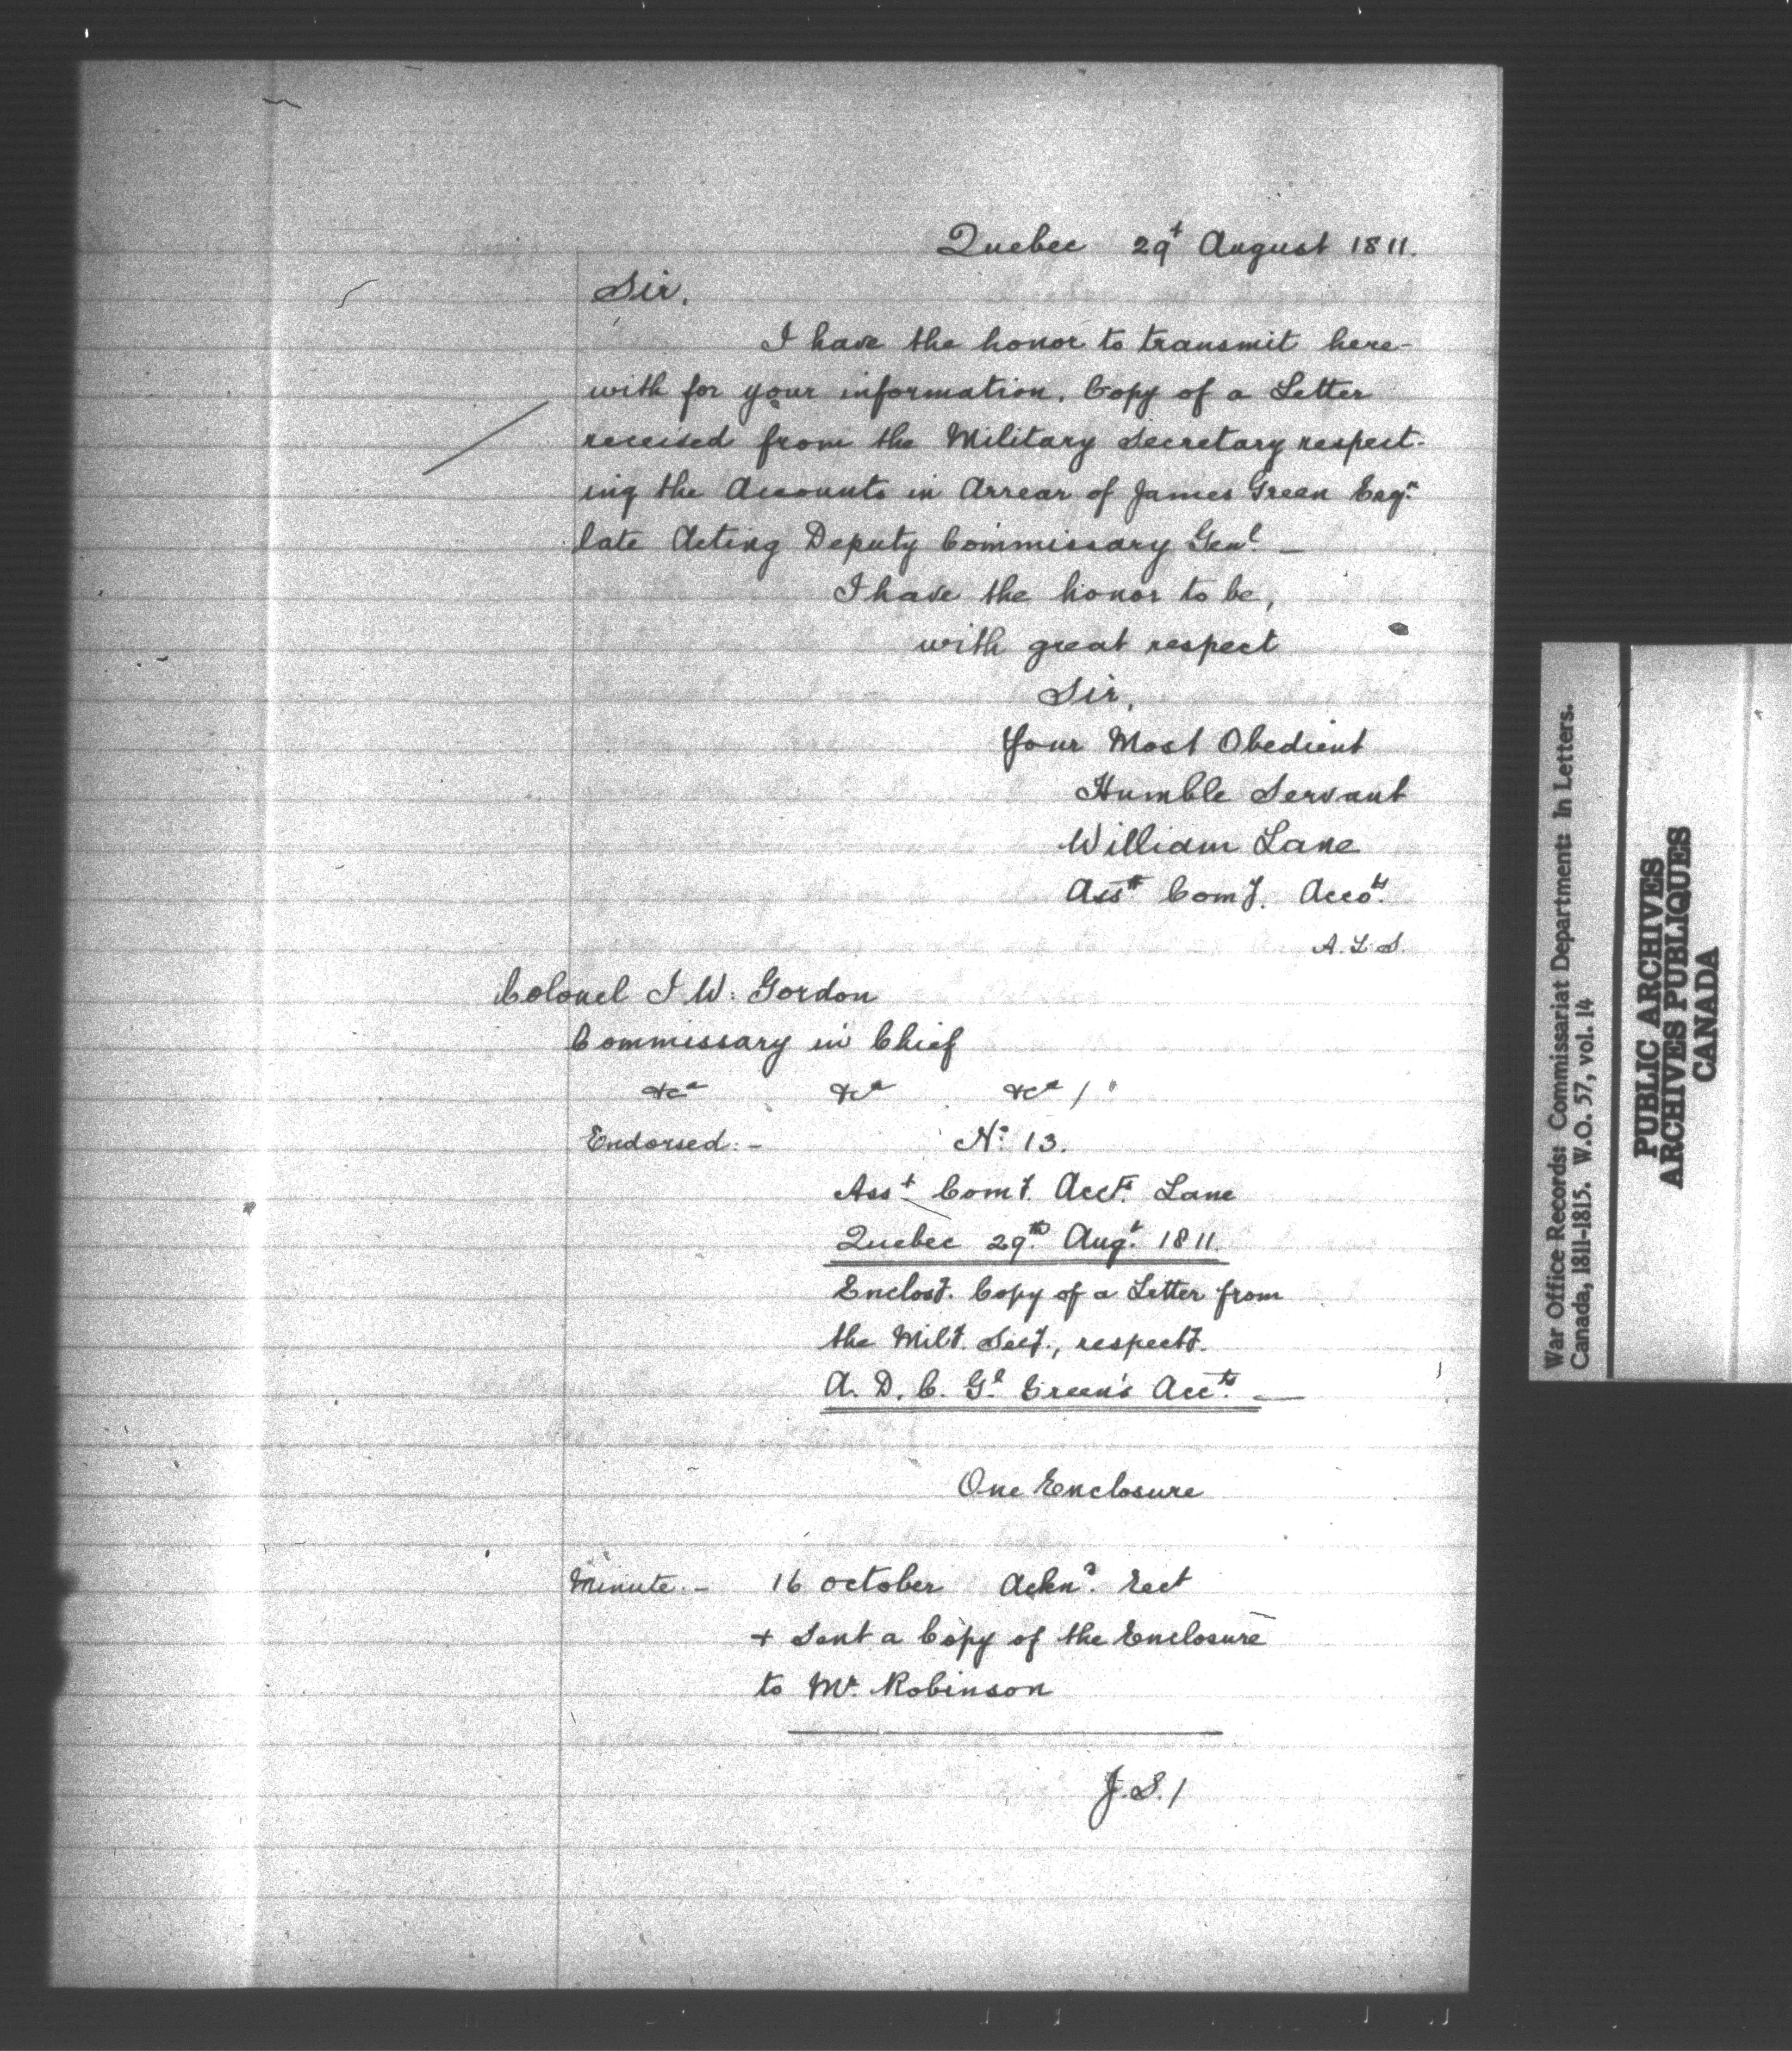 Quebec 29t August 1811.
Sir,
I have the honor to transmit here-
with for your information, Copy of a Letter
received from the Military Secretary respect-
ing the Accounts in Arrear of James Green Esqr
late Acting Deputy Commissary Genl. —
I have the honor to be,
with great respect
Sir,
Your Most Obedient
Humble Servant
William Lane
Asst Comy. Accots.
A. L. S.
Colonel J. W. Gordon
Commissary in Chief
&ca &ca &ca /
Endorsed: - No. 13.
Asst Comy. Accts. Lane
Quebec 29th Augt. 1811.
Enclosg. Copy of a Letter from
the Mily. Secy., respectg.
A. D. C. Gl. Green's Accts. —
One Enclosure
Minute. - 16 October Ackn. Rect
+ Sent a Copy of the Enclosure
to Mr. Robinson
J.S. /
War Office Records: Commissariat Department: In Letters.
Canada, 1811-1815. W.O. 57, vol. 14
PUBLIC ARCHIVES
ARCHIVES PUBLIQUES
CANADA